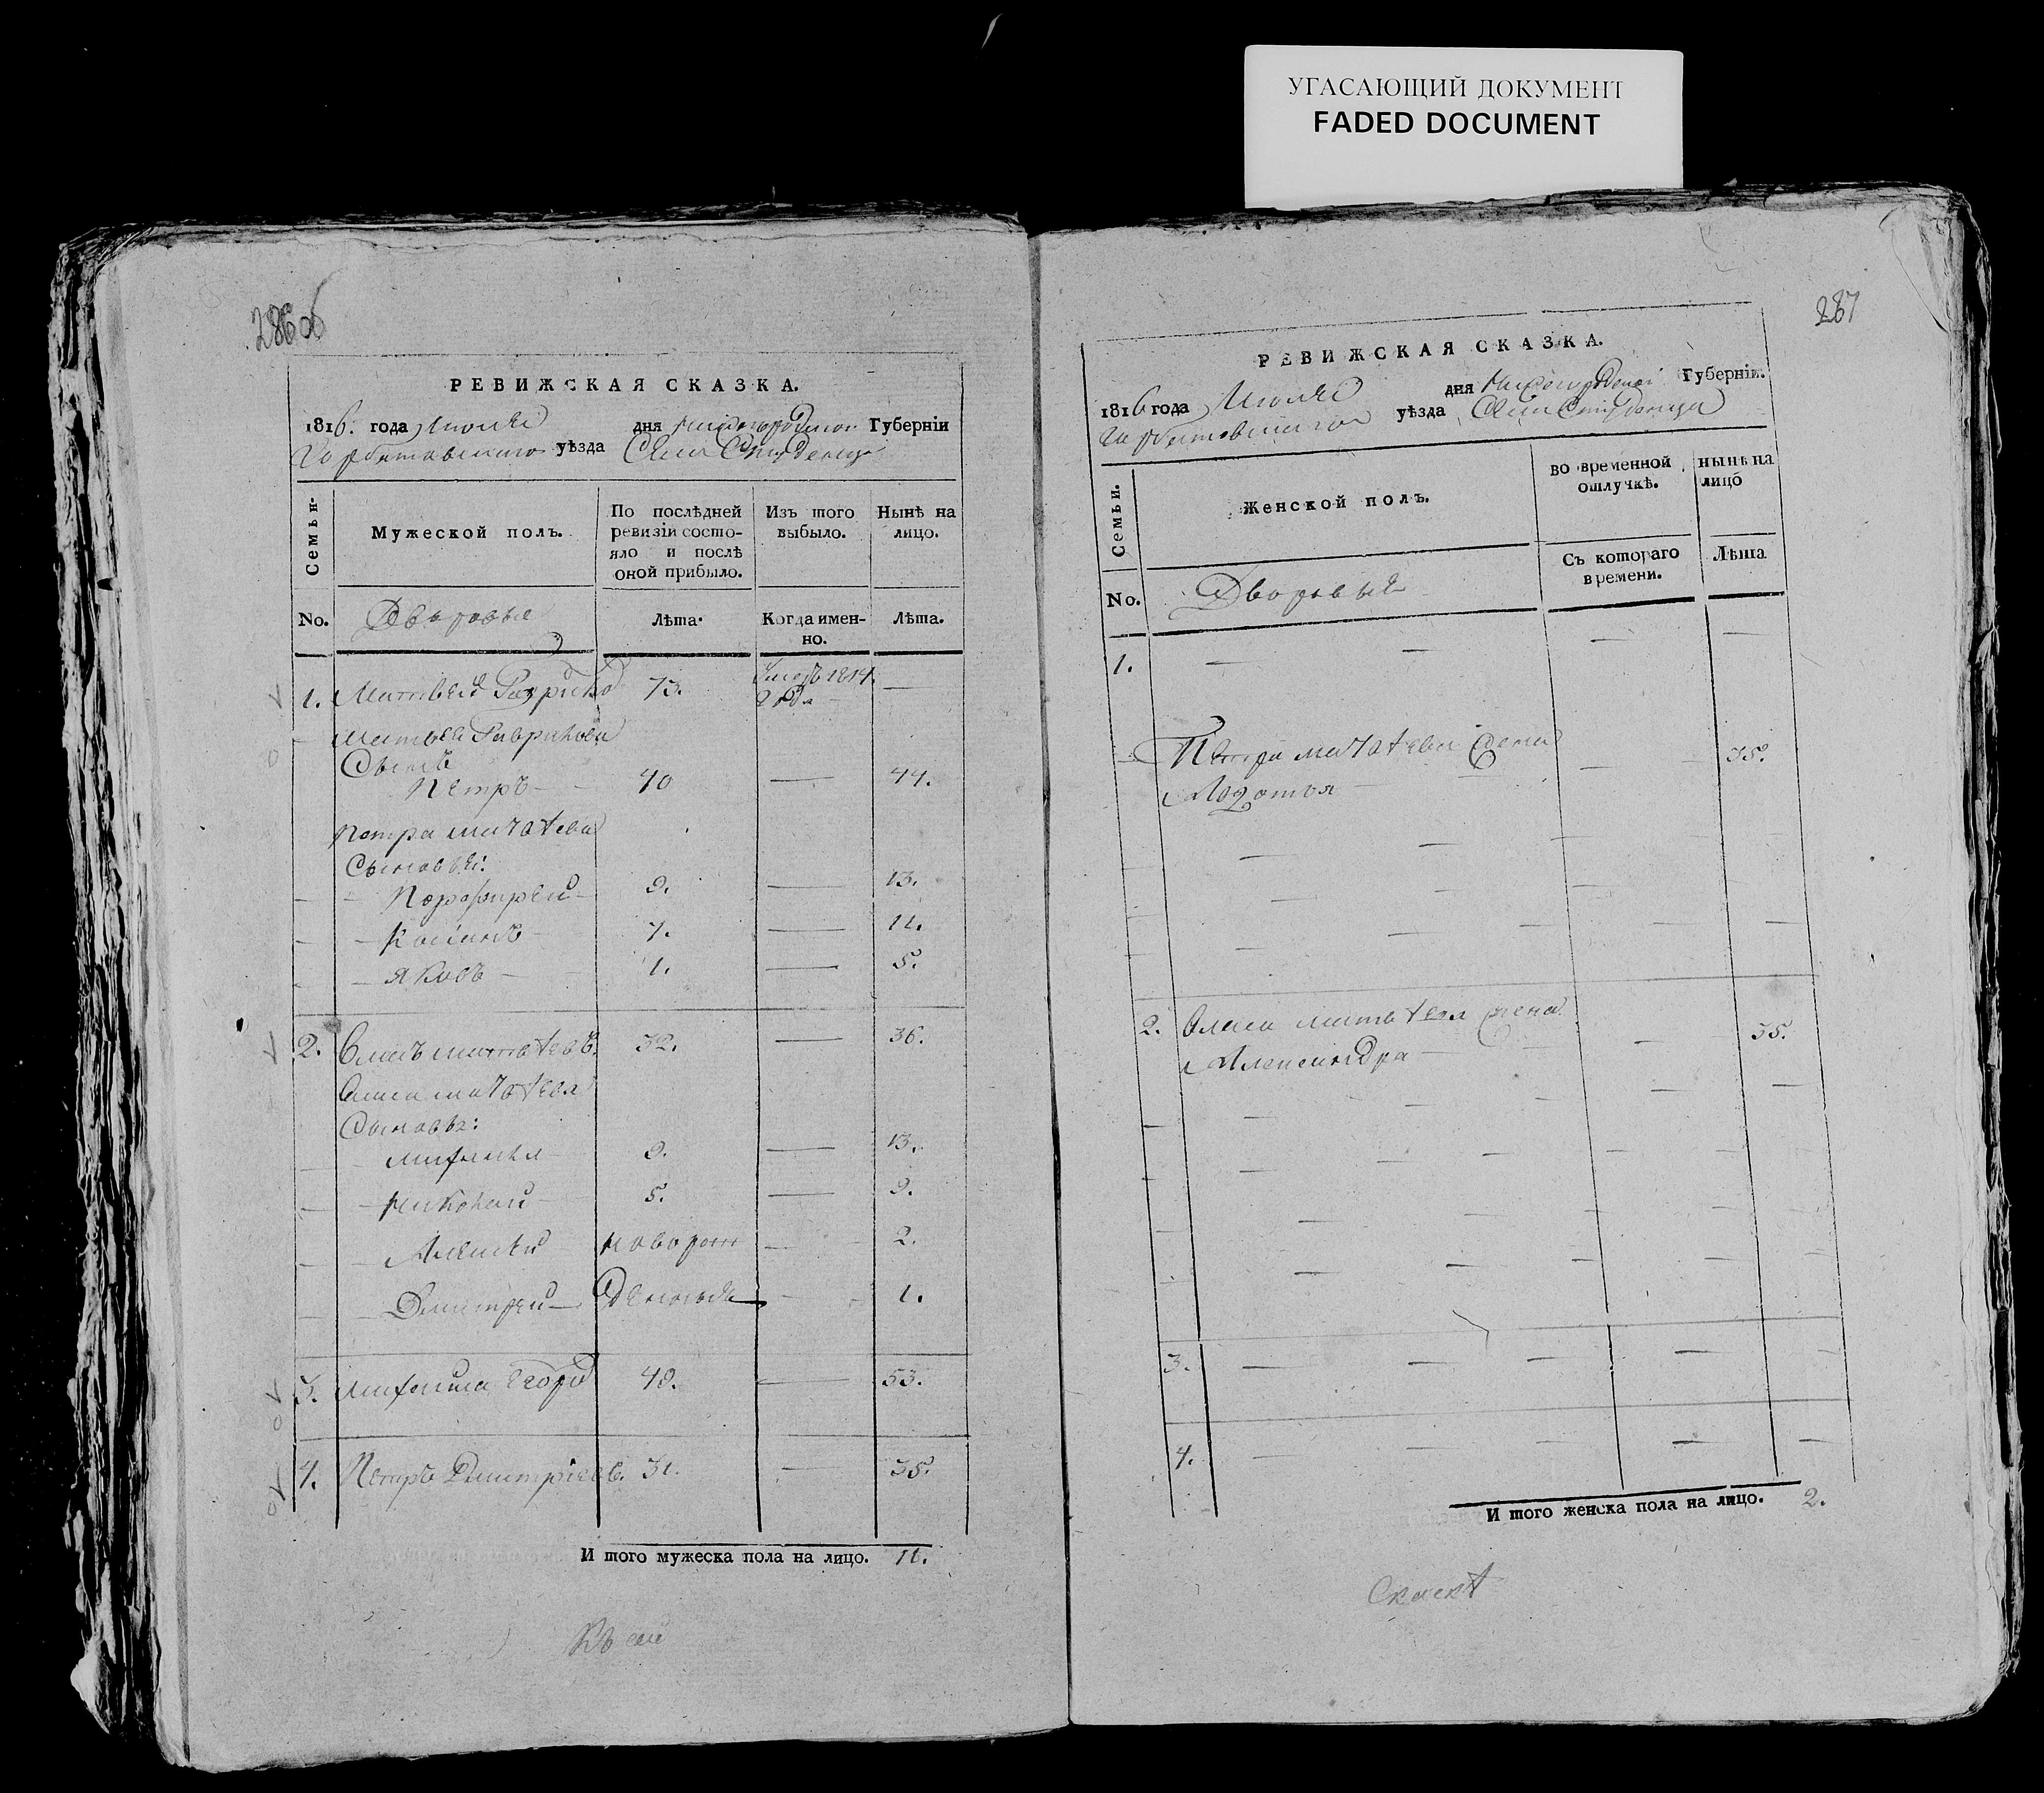 УГАСАЮЩИЙ ДОКУМЕНТ
FADED DOCUMENT
286об
РЕВИЖСКАЯ СКАЗКА.
1816. года Июля дня Нижегородской Губерніи
Горбатовскаго уѣзда Села Студенца
Семьи.
Мужеской полъ.
По послѣдней ревизіи состояло и послѣ оной прибыло.
Изъ того выбыло.
Нынѣ на лицо.
No.
Дворовые
Лѣта.
Когда именно.
Лѣта.
1. Матвей 73. 1814. —
Матвея Гаврилова
Сынъ
Петръ — 40 — 44.
Петра Матвѣева
Сыновья:
— Порфирей — 9. — 13.
— Касьянъ — 7. — 11.
— Яковъ — 1. — 5.
2. Власъ Матвѣевъ. 32. — 36.
Власа Матвѣева
Сыновья:
Михаила 9. — 13.
— Николай — 5. — 9.
Алексѣй новорож — 2.
Дмитрей — денные — 1.
3. Михаила Егоровъ 49. — 53.
4. Петръ Дмитріевъ. 31. — 35.
И того мужеска пола на лицо. 11.
287
РЕВИЖСКАЯ СКАЗКА.
1816 года Июля дня Нижегородской Губерніи.
Горбатовскаго уѣзда Села Студенца
Семьи.
Женской полъ.
во временной отлучкѣ.
нынѣ на лицо
Съ котораго времени.
Лѣта
No.
Дворовые
1. — — — —
Петра Матвѣева Жена
— 35.
2. Власа Матвѣева Жена
Александра — — 35.
3. — — — —
4. — — — —
И того женска пола на лицо. 2.